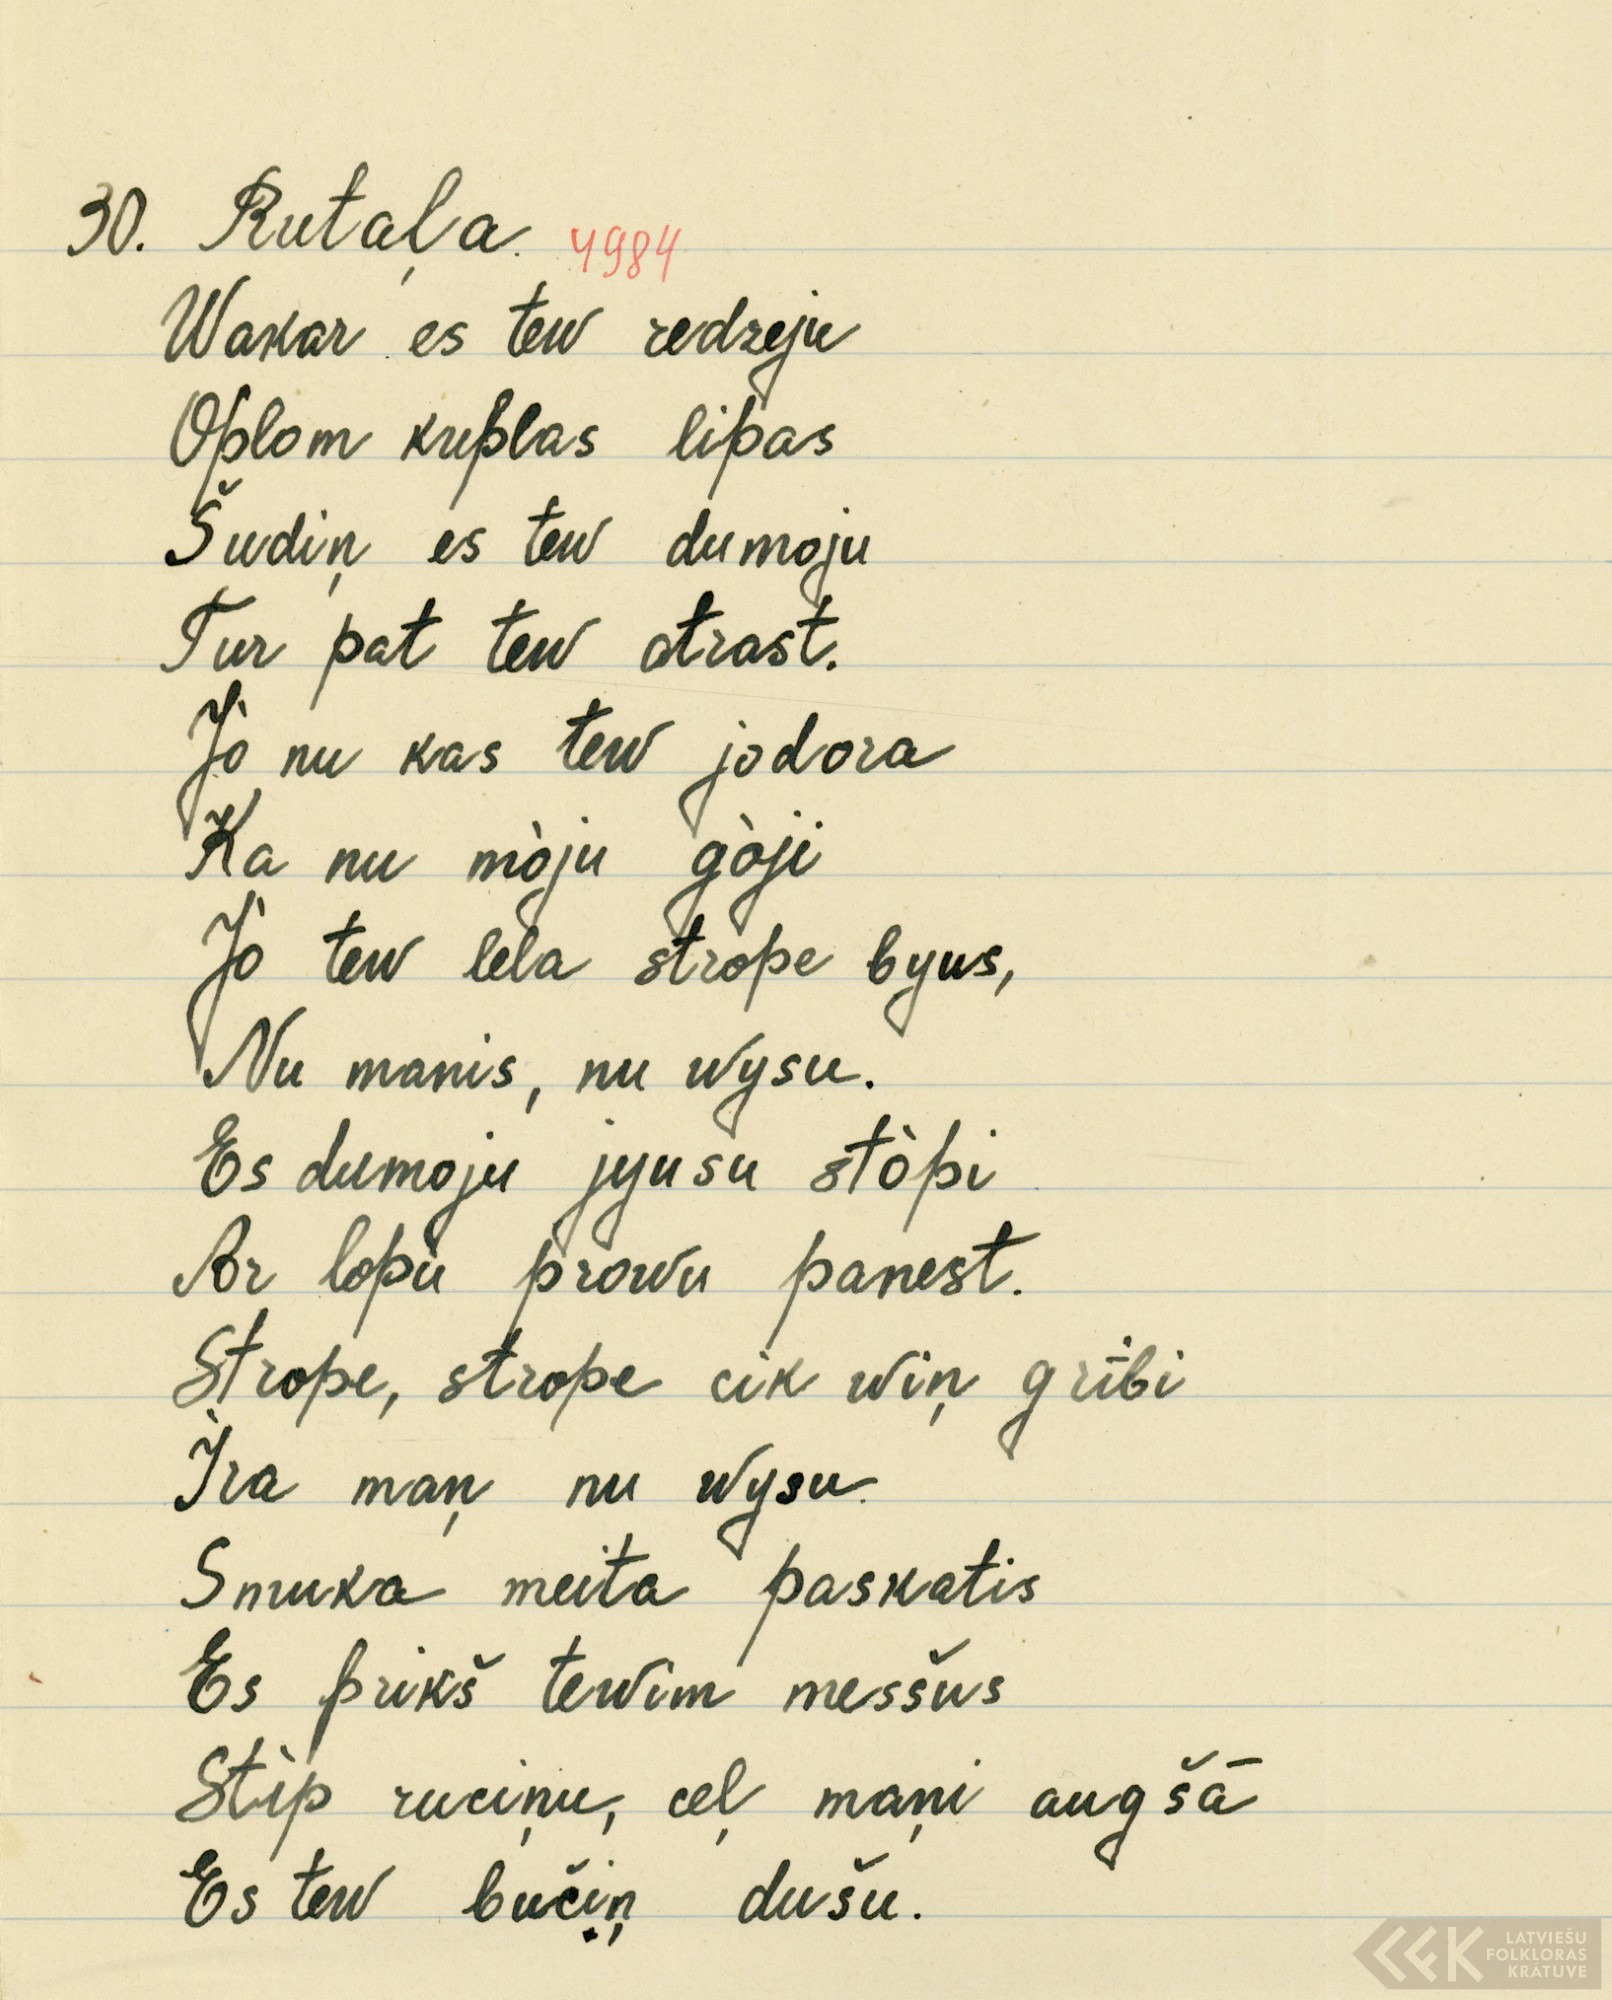 30. Rutaļa. 4984
Wakar es tew redzeju
Oplom kuplas lipas
Šudiņ es tew dumoju
Tur pat tew otrast.
Jò nu kas tew jodora
Ka nu mòju gòji
Jò tew lela strope byus,
Nu manis, nu wysu.
Es dumoju jyusu stòpi
Ar lopu prowu panest.
Strope, strope cik wiņ grībi
Ìra maņ nu wysu.
Smuka meita paskatis
Es prikš tewim messšus
Stìp ruciņu, ceļ maņi augšā
Es tew bučiņ dušu.
LATVIEŠU
FOLKLORAS
KRĀTUVE